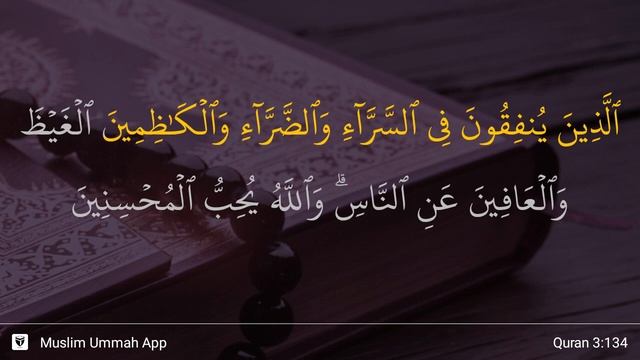 ٱلَّذِينَ يُنفِقُونَ فِى ٱلسَّرَّآءِ وَٱلضَّرَّآءِ وَٱلْكَـٰظِمِينَ ٱلْغَيْظَ
وَٱلْعَافِينَ عَنِ ٱلنَّاسِ ۗ وَٱللَّهُ يُحِبُّ ٱلْمُحْسِنِينَ
Muslim Ummah App
Quran 3:134